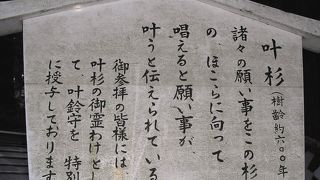 叶杉(樹齢約六〇〇年
諸々の願い事をこの杉
の、ほこらに向って
唱えると願い事が
叶うと伝えられている
御参拝の皆様には
叶杉の御霊わけとし
て、叶鈴守を特別
に授与しております